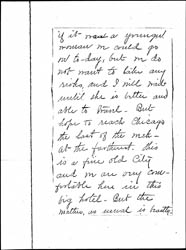 if it was a younger
woman we could go
on to-day, but we do
not want to take any
risks, and I will wait
until she is better and
able to travel - But
hope to reach Chicago
the last of the week -
at the farthest. This
is a fine old City
and we are very com-
fortable here in this
big hotel - But the
, as usual is